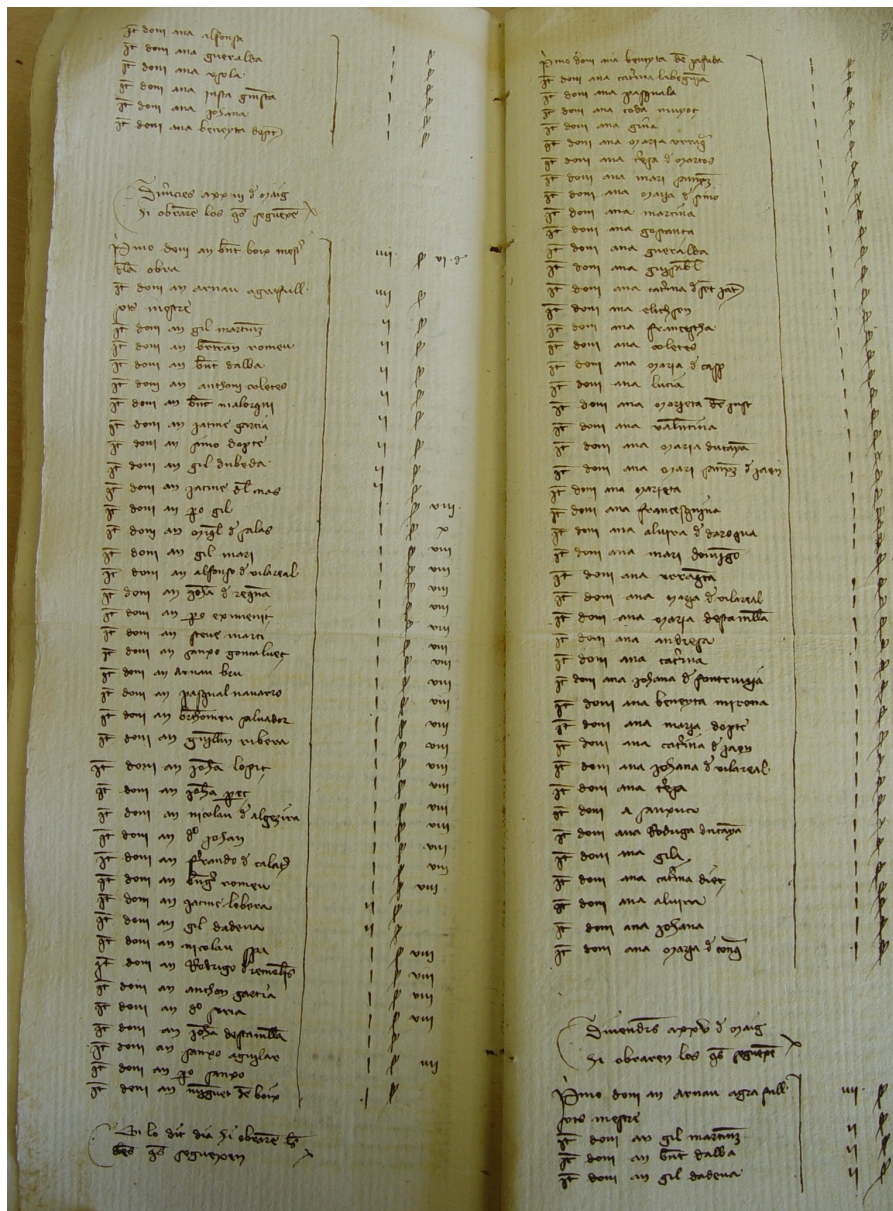 It doni ana alfonsa I ſ
It doni ana gueralda I ſ
It doni ana I ſ
It doni ana justa I ſ
It doni ana johana I ſ
It doni ana beneyta I ſ
Dimecres xxiii de maig
hi obraren los qs seguexen
Primo doni an bnt boix iiii ſ vi d
dla obra
It doni an arnau agrafull iiii ſ
sots mestre
It doni an gil martinz ii ſ
It doni an bertran romeu ii ſ
It doni an bnt dalba ii ſ
It doni an anthoni coletes ii ſ
It doni an bnt malorqui ii ſ
It doni an jacme garcia ii ſ
It doni an simo dopte ii ſ
It doni an gil dubeda ii ſ
It doni an jacme del mas ii ſ
It doni an po gil I ſ viii
It doni an migl d salas I ſ x
It doni an gil mari I ſ viii
It doni an alfonso d vilareal I ſ viii
It doni an joha d regna I ſ viii
It doni an po eximenic I ſ viii
It doni an steve marti I ſ viii
It doni an sanxo goncalveç I ſ viii
It doni an arnau bru I ſ viii
It doni an pasqual navarro I ſ viii
It doni an brthomeu salvador I ſ viii
It doni an guillm ribera I ſ viii
It doni an joha lopiç I ſ viii
It doni an joha pereç I ſ viii
It doni an nicolau d algezira I ſ viii
It doni an do johan I ſ viii
It doni an ferrando d I ſ viii
It doni an romeu I ſ viii
It doni an jacme lobera ii ſ
It doni an gil dadena ii ſ
It doni an nicolau
It doni an Rodrigo I ſ viii
It doni an anthon garcia I ſ viii
It doni an do soria I ſ viii
It doni an joha destamlla I ſ
It doni an sanxo aguilar
It doni an po sanxo I ſ iiii
It doni an de boix I ſ
En lo dit dia hi obraren
dones qs seguexen
Primo doni ana beneyta I ſ
It doni ana catrina I ſ
It doni ana pasquala I ſ
It doni ana toda munyoç I ſ
It doni ana gina I ſ
It doni ana maria I ſ
It doni ana tresa d marios I ſ
It doni ana mari sanxz I ſ
It doni ana maria d simo I ſ
It doni ana martina I ſ
It doni ana gostanca I ſ
It doni ana gueralda I ſ
It doni ana I ſ
It doni ana catrina I ſ
It doni ana elichsen I ſ
It doni ana francescha I ſ
It doni ana coletes I ſ
It doni ana maria d casp I ſ
It doni ana lucia I ſ
It doni ana marieta I ſ
It doni ana valentina I ſ
It doni ana maria ducaya I ſ
It doni ana mari sanxz d jaen I ſ
It doni ana marieta I ſ
It doni ana francesquina I ſ
It doni ana alvira d daroqua I ſ
It doni ana mari domigo I ſ
It doni ana I ſ
It doni ana maria d vilareal I ſ
It doni ana maria destamlla I ſ
It doni ana andrea I ſ
It doni ana catrina I ſ
It doni ana johana d I ſ
It doni ana beneyta mirona I ſ
It doni ana maria dopte I ſ
It doni ana catrina d jaen I ſ
It doni ana johana d vilareal I ſ
It doni ana tresa I ſ
It doni a I ſ
It doni ana ducaya I ſ
It doni ana gila I ſ
It doni ana catrina dieç I ſ
It doni ana alvira I ſ
It doni ana johana I ſ
It doni ana maria d I ſ
Divendrs xxv d maig
hi obraren los qs seguexen
Primo doni an arnau agrafull iiii ſ
sots mestre
It doni an gil martinz ii ſ
It doni an bnt dalba ii ſ
It doni an gil dadena ii ſ